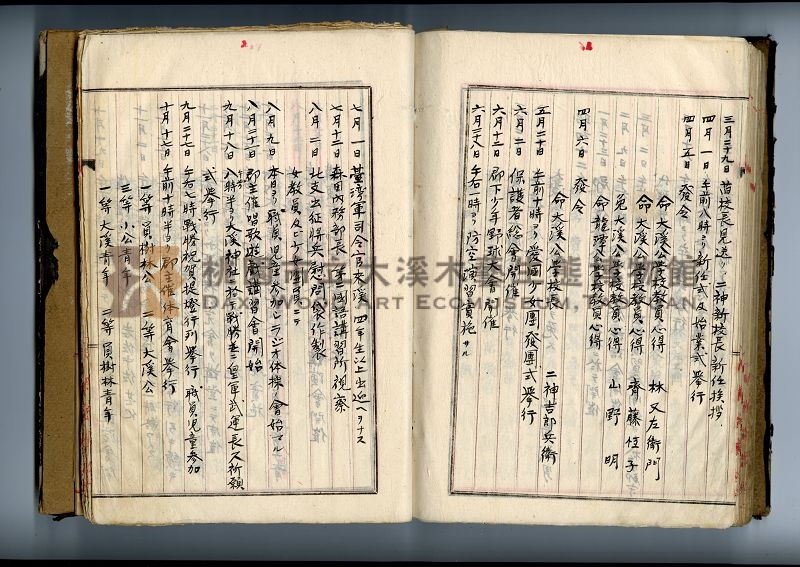 三月二十九日 舊校長見送リ 二神新校長新任挨拶
四月一日 午前八時ヨリ新任式及始業式舉行
四月五日 發令
命 大溪公學校教員心得 林又左衛門
命 大溪公學校教員心得 齋藤恒子
免 大溪公學校教員心得
命 龍潭公學校教員心得 山野明
四月六日 發令
命 大溪公學校長 二神吉郎兵衛
五月二十日 午前十時ヨリ愛國少女團發團式舉行
六月二日 保護者総會開催
六月十二日 郡下少年野球大會開催
六月二八日 午后一時ヨリ防空演習實施サル
七月一日 臺灣軍司令官來溪 四年生以上出迎ヘヲナス
七月十二日 森田内務部長 第二國語講習所視察
八月二日 北支出征將兵慰問袋作製
女教員及ビ少年團員ニテ
八月九日 本日ヨリ職員兒童參加ラジオ体操ノ會始マル
八月二十日 郡主催唱歌遊戲講習會開始
九月十八日 八時半ヨリ大溪神社ニ於テ戰勝並ニ皇軍武運長久祈願
式舉行
九月二十七日 午后七時戰勝祝賀提燈行列舉行 職員兒童參加
十月十七日 午前十時半ヨリ郡主催体育會舉行
一等 員樹林公 二等 大溪公
三等 小公青年
一等 大溪青年 二等 員樹林青年
桃園市立大溪木藝生態博物館
DAXI WOOD ART ECOMUSEUM, TAOYUAN